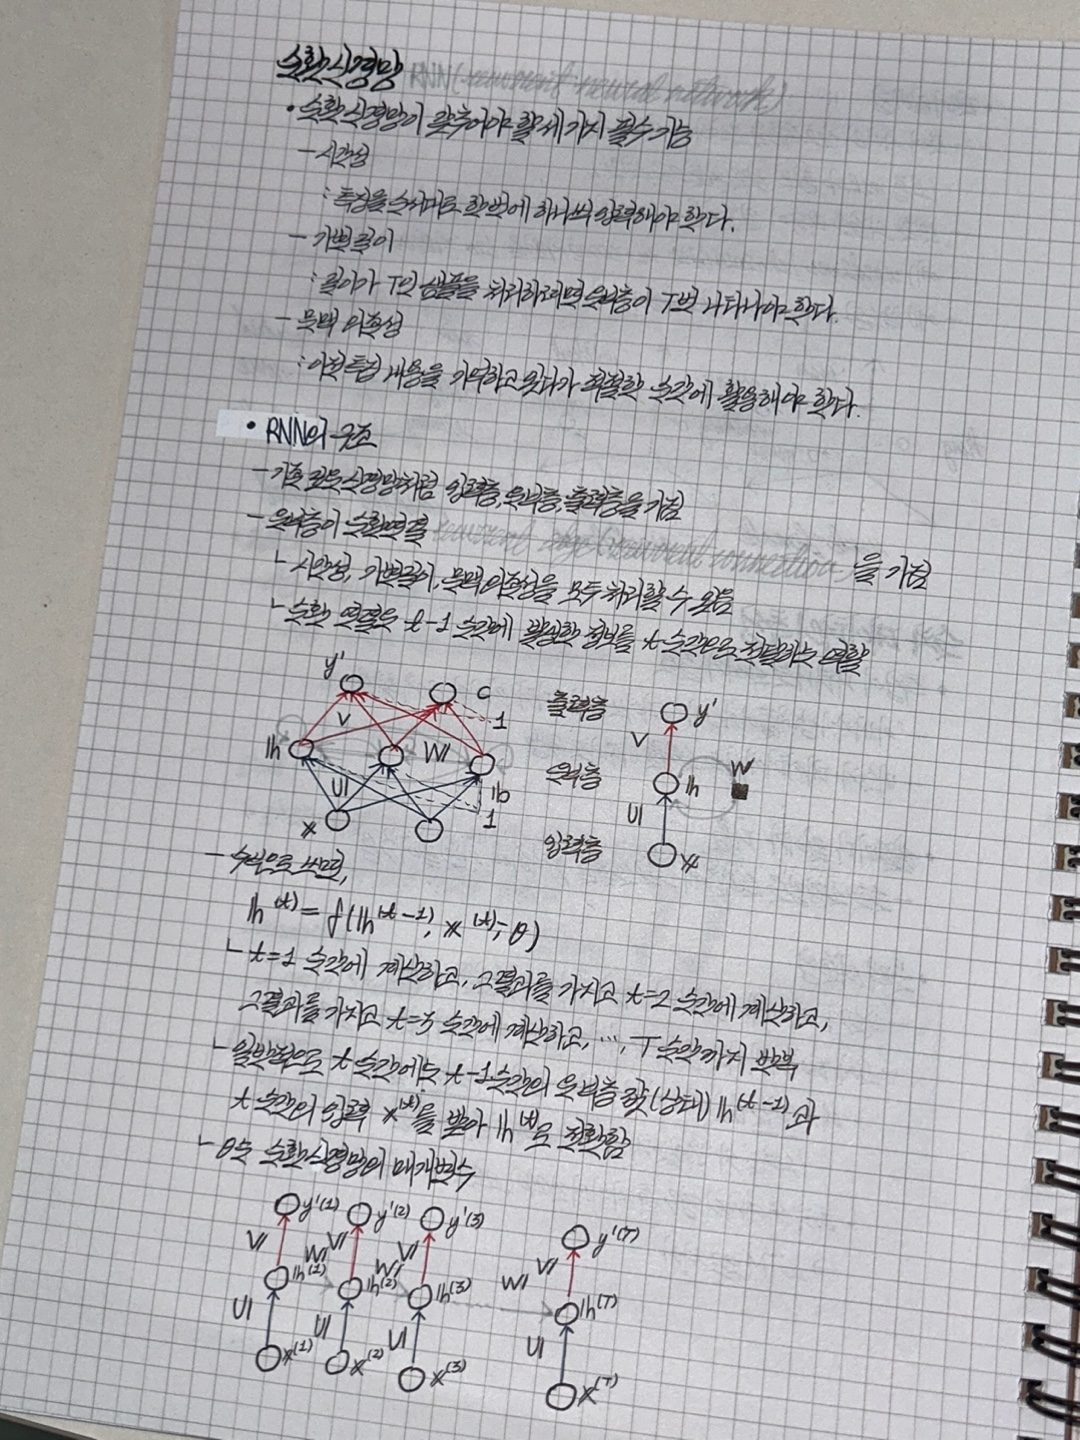 순환 신경망 RNN(recurrent neural network)
• 순환 신경망이 갖추어야 할 세 가지 필수 기능
- 시간성
: 특징을 순서대로 한 번에 하나씩 입력해야 한다.
- 가변 길이
: 길이가 T인 샘플을 처리하려면 은닉층이 T번 나타나야 한다.
- 문맥 의존성
: 이전 특징 내용을 기억하고 있다가 적절한 순간에 활용해야 한다.
• RNN의 구조
- 기존 깊은 신경망처럼 입력층, 은닉층, 출력층을 가짐
- 은닉층이 순환 연결 recurrent edge(recurrent connection)을 가짐
ㄴ 시간성, 가변 길이, 문맥 의존성을 모두 처리할 수 있음
ㄴ 순환 연결은 t-1 순간에 발생한 정보를 t 순간으로 전달하는 역할
y' c 출력층 y'
V 1 V
h W 은닉층 h W
U b U
x 1 입력층 x
- 수식으로 쓰면,
h(t) = f(h(t-1), x(t); θ)
ㄴ t=1 순간에 계산하고, 그 결과를 가지고 t=2 순간에 계산하고,
그 결과를 가지고 t=3 순간에 계산하고, …, T 순간까지 반복
ㄴ 일반적으로 t 순간에는 t-1 순간의 은닉층 값(상태) h(t-1)과
t 순간의 입력 x(t)를 받아 h(t)로 전환함
ㄴ θ는 순환 신경망의 매개변수
y'(1) y'(2) y'(3) y'(T)
V W V W V W V
h(1) h(2) h(3) h(T)
U U U U
x(1) x(2) x(3) x(T)